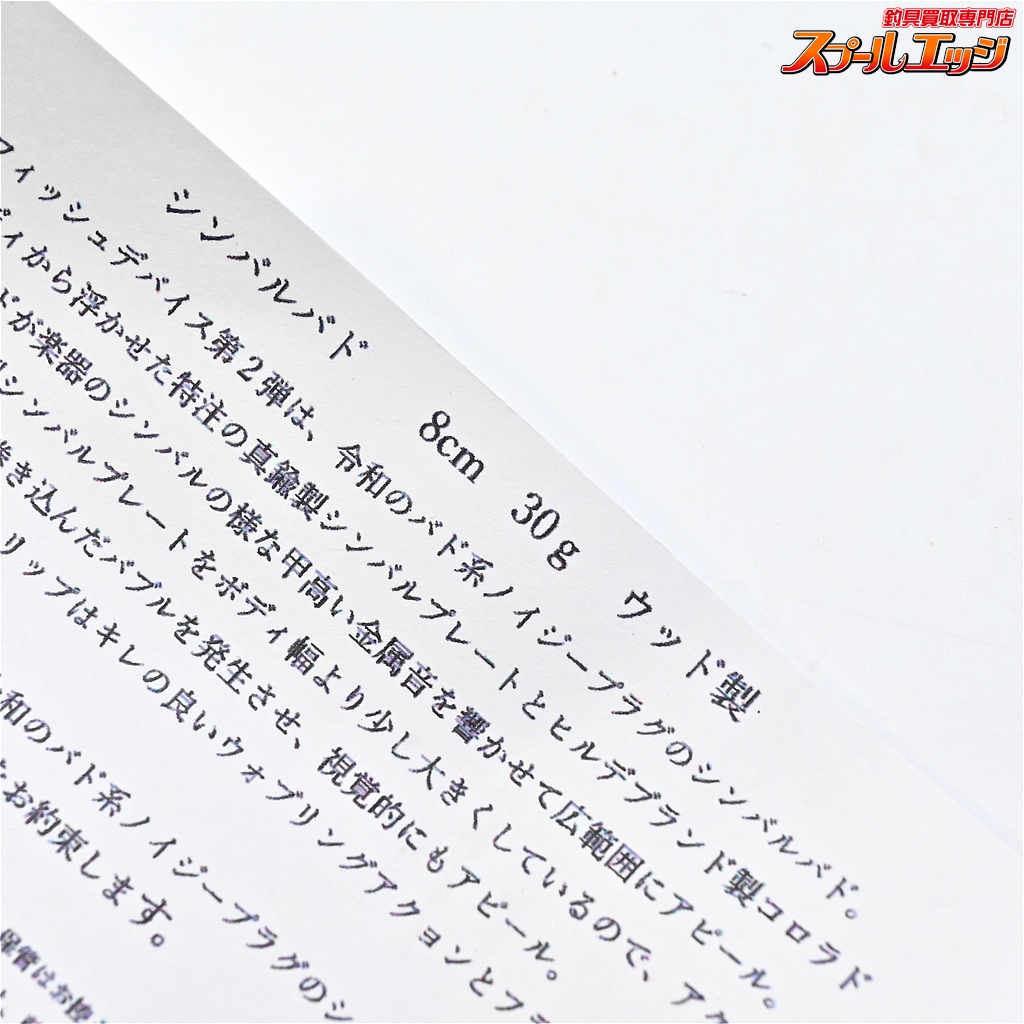 釣具買取専門店
スプールエッジ
シンバルバド 8cm 30g ウッド製
フィッシュデバイス第2弾は、令和のバド系ノイジープラグのシンバルバド。
ディから浮かせた特注の真鍮製シンバルプレートとヒルデブランド製コロラド
ドが楽器のシンバルの様な甲高い金属音を響かせて広範囲にアピール。
シンバルプレートをボディ幅より少し大きくしているので、アク
巻き込んだバブルを発生させ、視覚的にもアピール。
リップはキレの良いウォブリングアクションとフラ
和のバド系ノイジープラグのシ
お約束します。
保管はお控